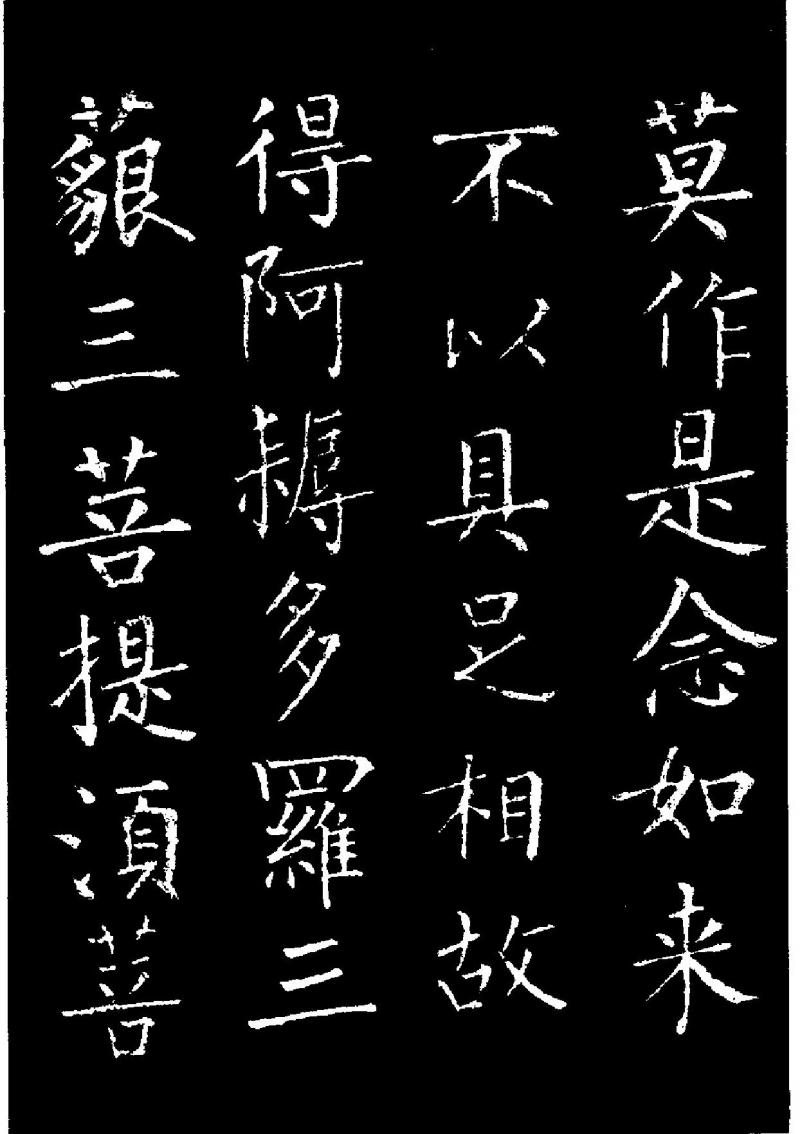 莫作是念如来
不以具足相故
得阿耨多羅三
藐三菩提須菩